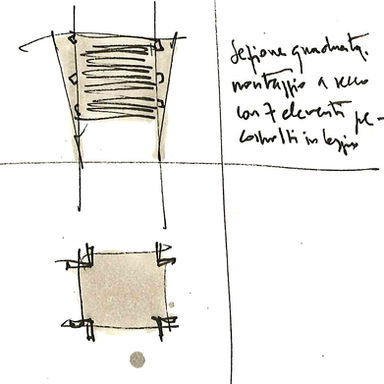 Sezione quadrata.
montaggio a secco
con 7 elementi pe-
costruiti in legno